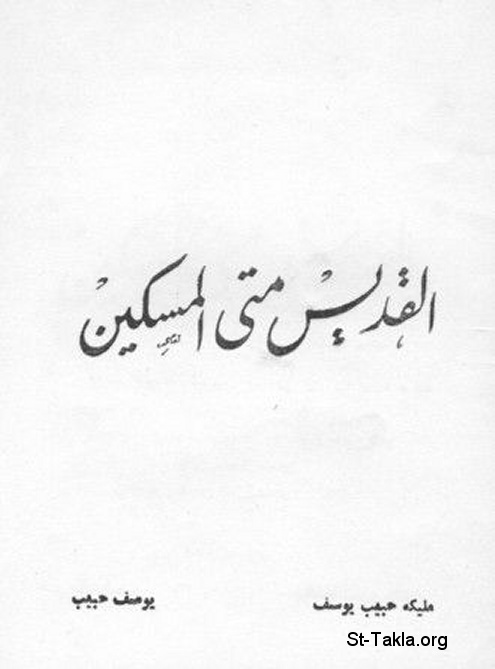 القديس متى المسكين
مليكه حبيب يوسف    يوسف حبيب
St-Takla.org